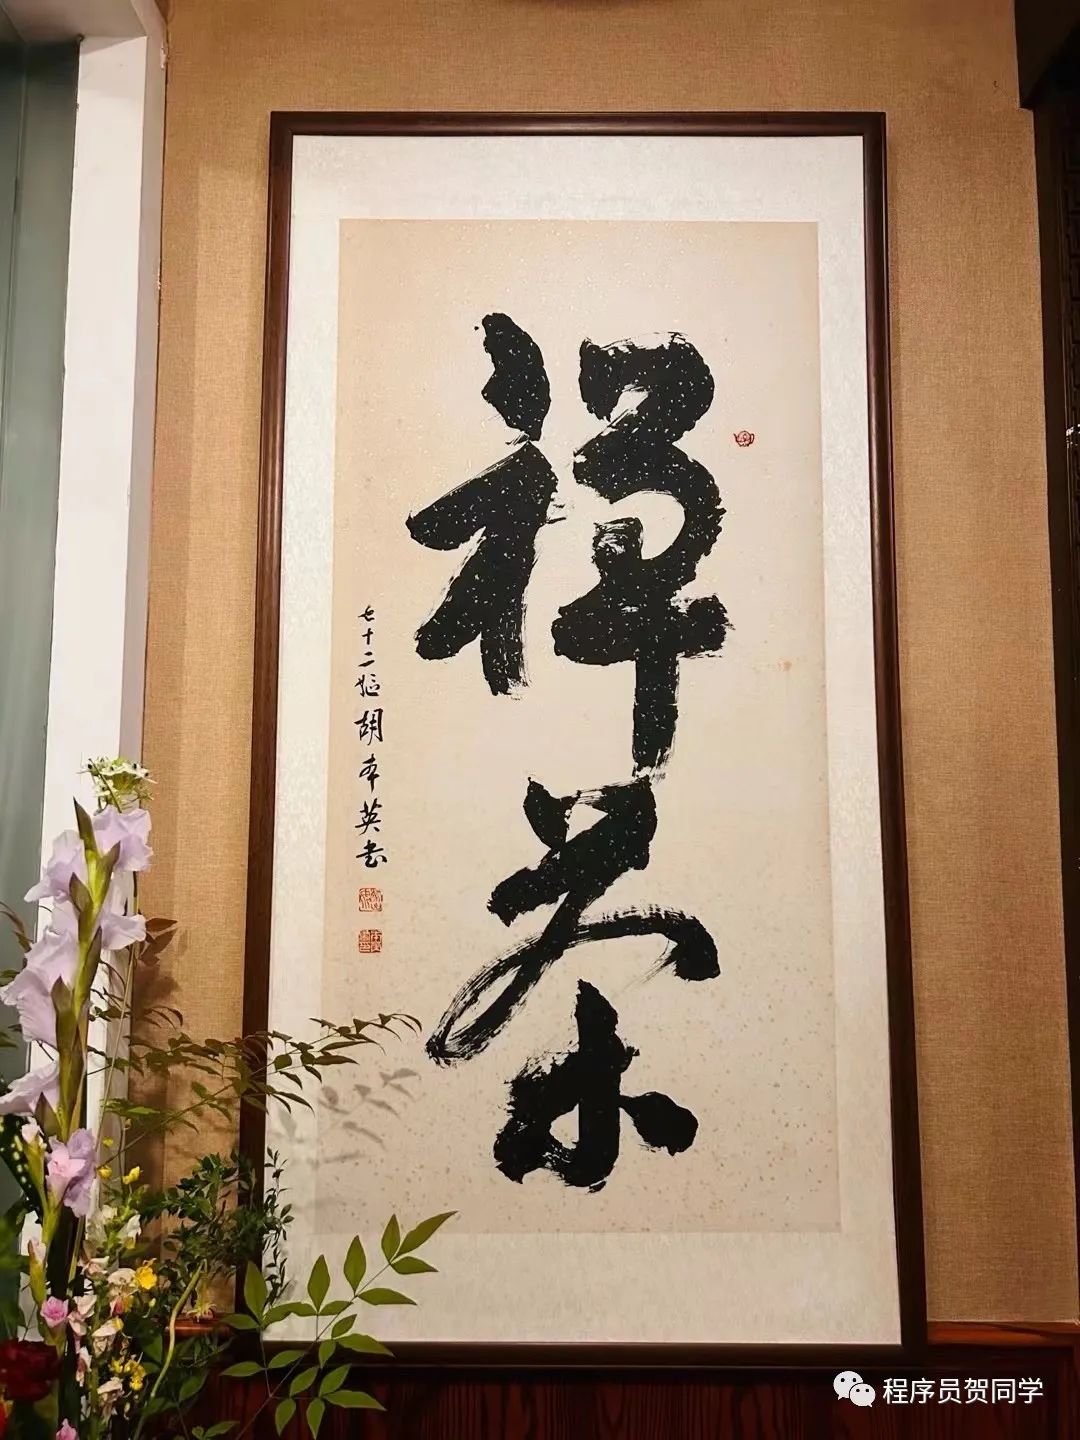 禅茶
七十二妪胡本英书
程序员贺同学